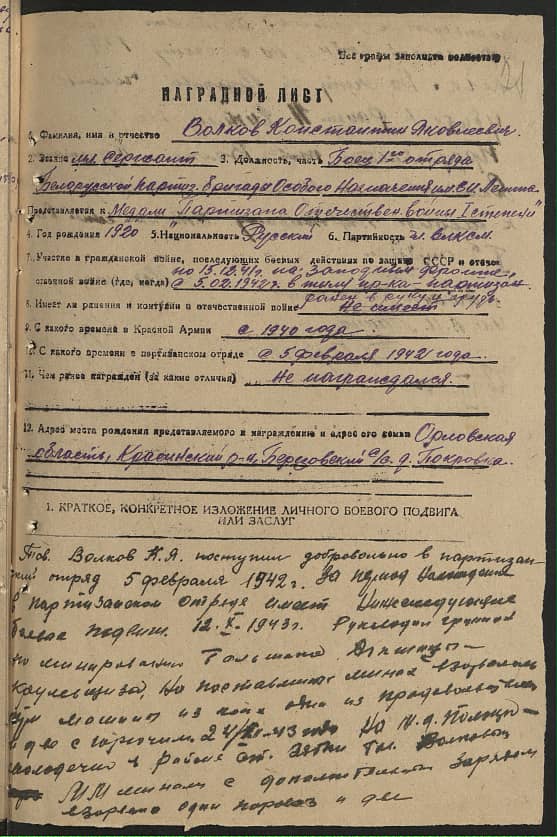 Все графы заполнять полностью
НАГРАДНОЙ ЛИСТ
1. Фамилия, имя и отчество Волков Константин Яковлевич.
2. Звание мл. Сержант 3. Должность, часть Боец 1го отряда
Белорусской партиз. бригады Особого Назначения им. Ленина
Представляется к Медали "Партизана Отечествен. войны I степени"
4. Год рождения 1920 5. Национальность Русский 6. Партийность чл. влксм.
7. Участие в гражданской войне, последующих боевых действиях по защите СССР и отечес-
ственной войне (где, когда) по 15.12.41г. на западном фронте,
с 5.02.1942г. в тылу пр-ка - партизан.
8. Имеет ли ранения и контузии в отечественной войне ранен в руку и грудь
Не имеет
9. С какого времени в Красной Армии с 1940 года
10. С какого времени в партизанском отряде с 5 февраля 1942 года.
11. Чем ранее награжден (за какие отличия) Не награждался.
12. Адрес места рождения представляемого к награждению и адрес его семьи Орловская
область, р-н, с/с. д. Покровка.
1. КРАТКОЕ, КОНКРЕТНОЕ ИЗЛОЖЕНИЕ ЛИЧНОГО БОЕВОГО ПОДВИГА
ИЛИ ЗАСЛУГ
Тов. Волков К.Я. поступил добровольно в партизан-
ский отряд 5 февраля 1942г. За период нахождения
в партизанском отряде имеет нижеследующие
боевые подвиги. 12.X-1943г. Руководил группой
по минированию
На поставленных минах взорвались
три машины из коих одна из продовольствием
и две с горючим. 24/XI-43 года на ж.д. Полоцк-
молодечно в районе ст. Зябки тов. Волковым
минами с дополнительным зарядом
взорвано один паровоз и две